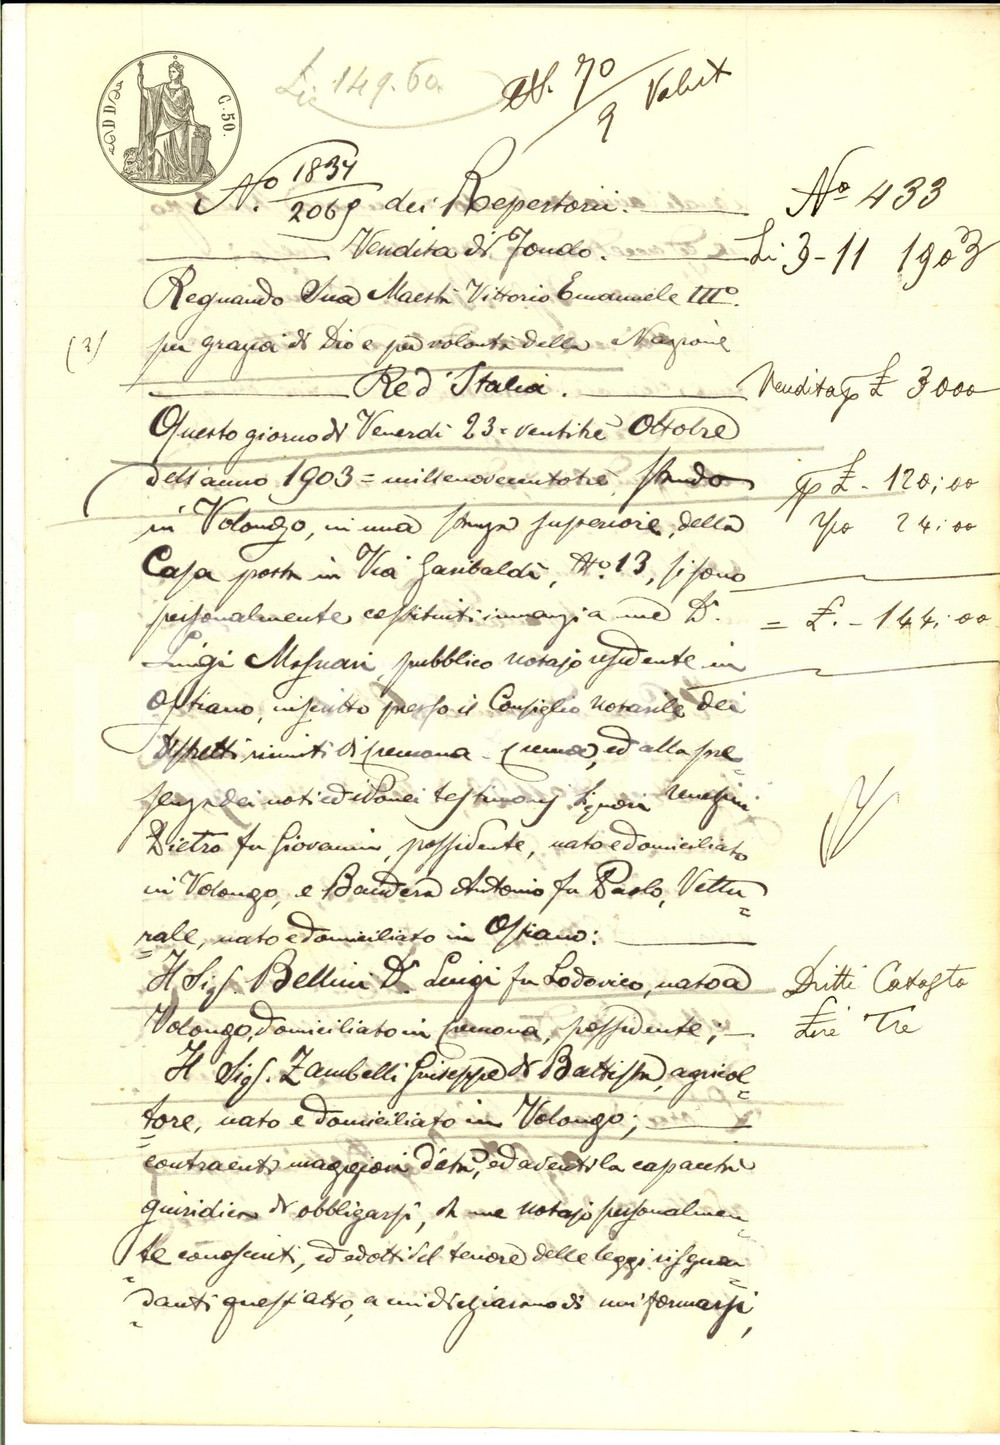 C. 50.
Li 149.60.
N. 70
9
N.° 1834
2069 dei Repertorii.
Vendita di Fondo.
Regnando Sua Maestà Vittorio Emanuele III°.
(2)
per grazia di Dio e per volontà della Nazione
Re d'Italia.
Questo giorno di Venerdì 23 = ventitrè Ottobre
dell'anno 1903 = millenovecentotrè, stando
in Volongo, in una stanza superiore, della
Casa posta in Via Garibaldi, N.° 13, si sono
personalmente costituiti innanzi a me D.r
Luigi Mosnari, pubblico notajo residente in
Ostiano, inscritto presso il Consiglio notarile dei
distretti riuniti di Cremona - Crema, ed alla pre=
senza dei noti ed idonei testimonj Signori
Pietro fu Giovanni, possidente, nato e domiciliato
in Volongo, e Bandera Antonio fu Paolo, Vettu=
rale, nato e domiciliato in Ostiano:
Il Sig.r Bellini D.r Luigi fu Lodovico, nato a
Volongo, domiciliato in Cremona, possidente;
Il Sig.r Zambelli Giuseppe di Battista, agricol=
tore, nato e domiciliato in Volongo;
contraenti maggiori d'età, ed aventi la capacità
giuridica di obbligarsi, da me notajo personalmen=
te conosciuti, ed edotti del tenore delle leggi risguar=
danti quest'atto, a cui dichiarano di uniformarsi,
N° 433
Li 3-11 1903
Vendita £ 3000
£ - 120,00
24,00
= £. - 144,00
Dritti Catasto
Lire Tre